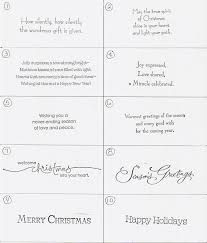 1
How silently, how silently,
the wondrous gift is given.
2
May the true spirit
of Christmas
shine in your heart
and light your path.
3
4
Joy expressed,
Love shared,
A Miracle celebrated.
5
Wishing you a
never ending season
of love and peace.
6
Warmest greetings of the season
and every good wish
for the coming year.
7
welcome
christmas
into your heart.
8
Season's Greetings
9
MERRY CHRISTMAS
10
Happy Holidays